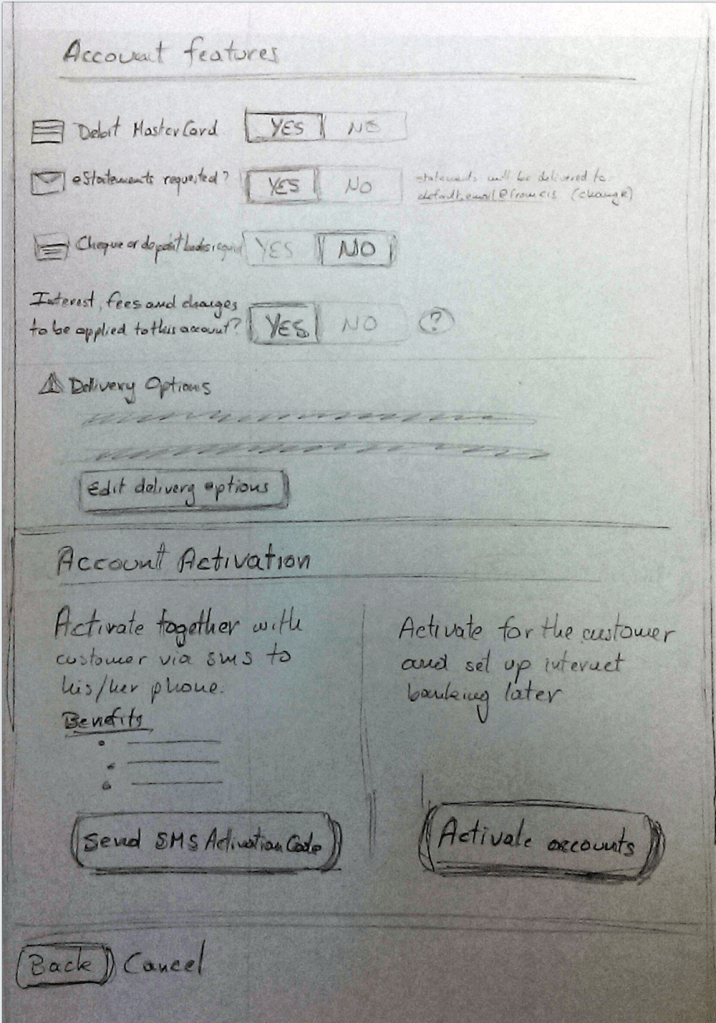 Account features
Debit MasterCard YES NO
eStatements requested? YES NO statements will be delivered to
(change)
Cheque or deposit books YES NO
Interest, fees and charges
to be applied to this account? YES NO ?
Delivery Options
Edit delivery options
Account Activation
Activate together with
customer via sms to
his/her phone.
Benefits
Send SMS Activation Code
Activate for the customer
and set up internet
banking later
Activate accounts
Back Cancel